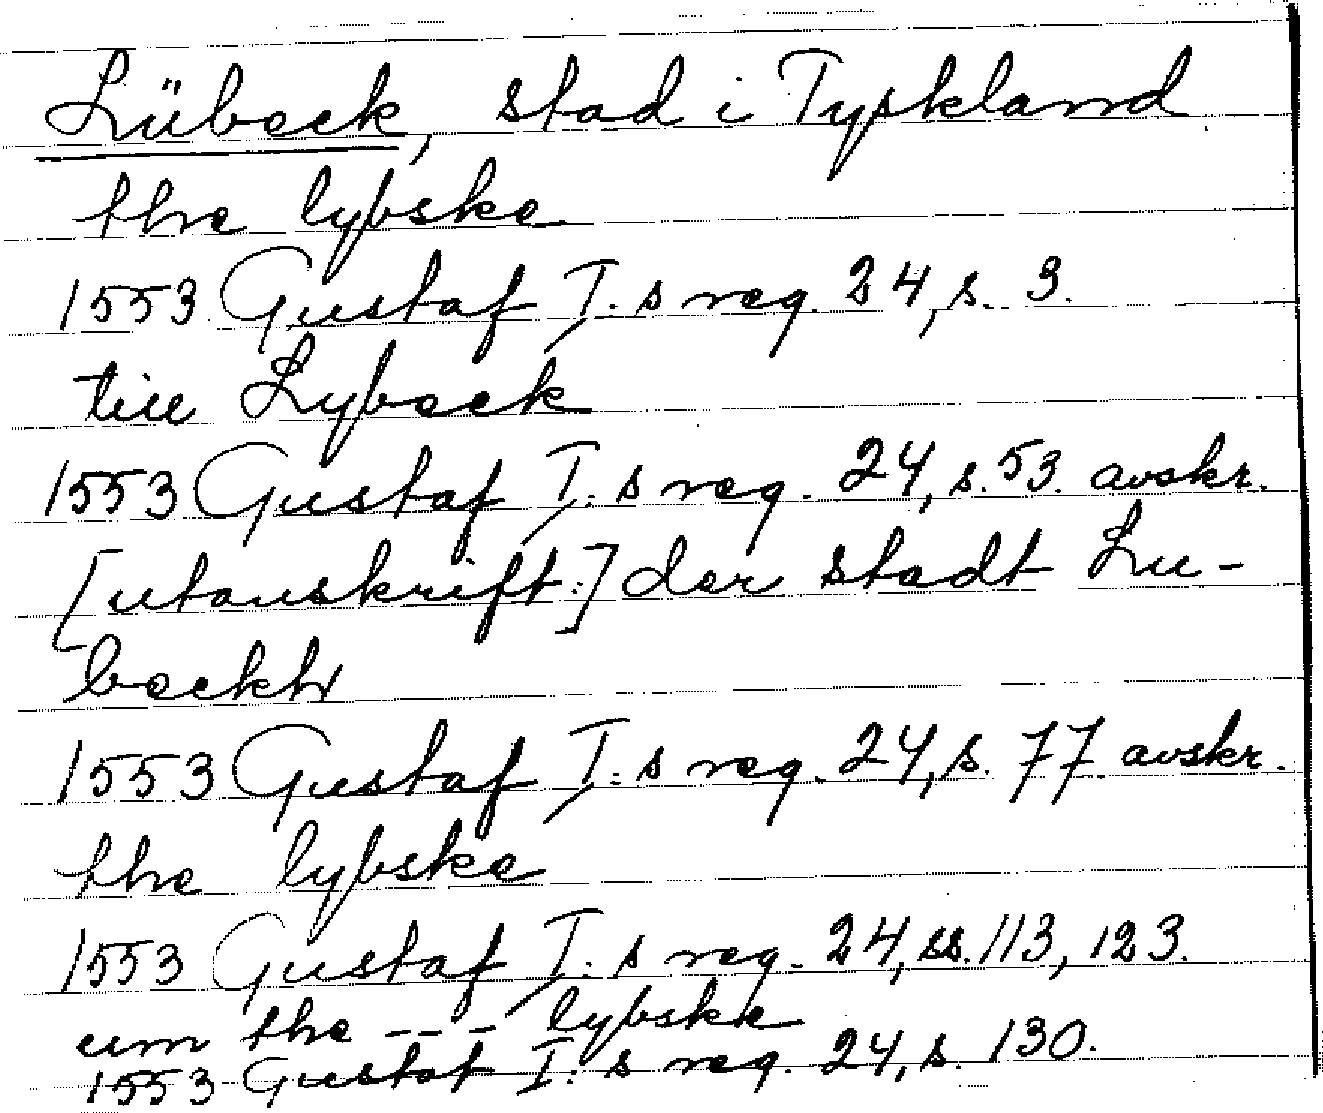 Lübeck, stad i Tyskland
the lybske
1553 Gustaf I:s reg. 24, s. 3.
till Lybeck
1553 Gustaf I:s reg. 24, s. 53. avskr.
[utanskrift:] der stadt Lu-
beckh
1553 Gustaf I:s reg. 24, s. 77 avskr.
the lybske
1553 Gustaf I:s reg. 24, ss. 113, 123.
um the --- lybske
1553 Gustaf I:s reg. 24, s. 130.